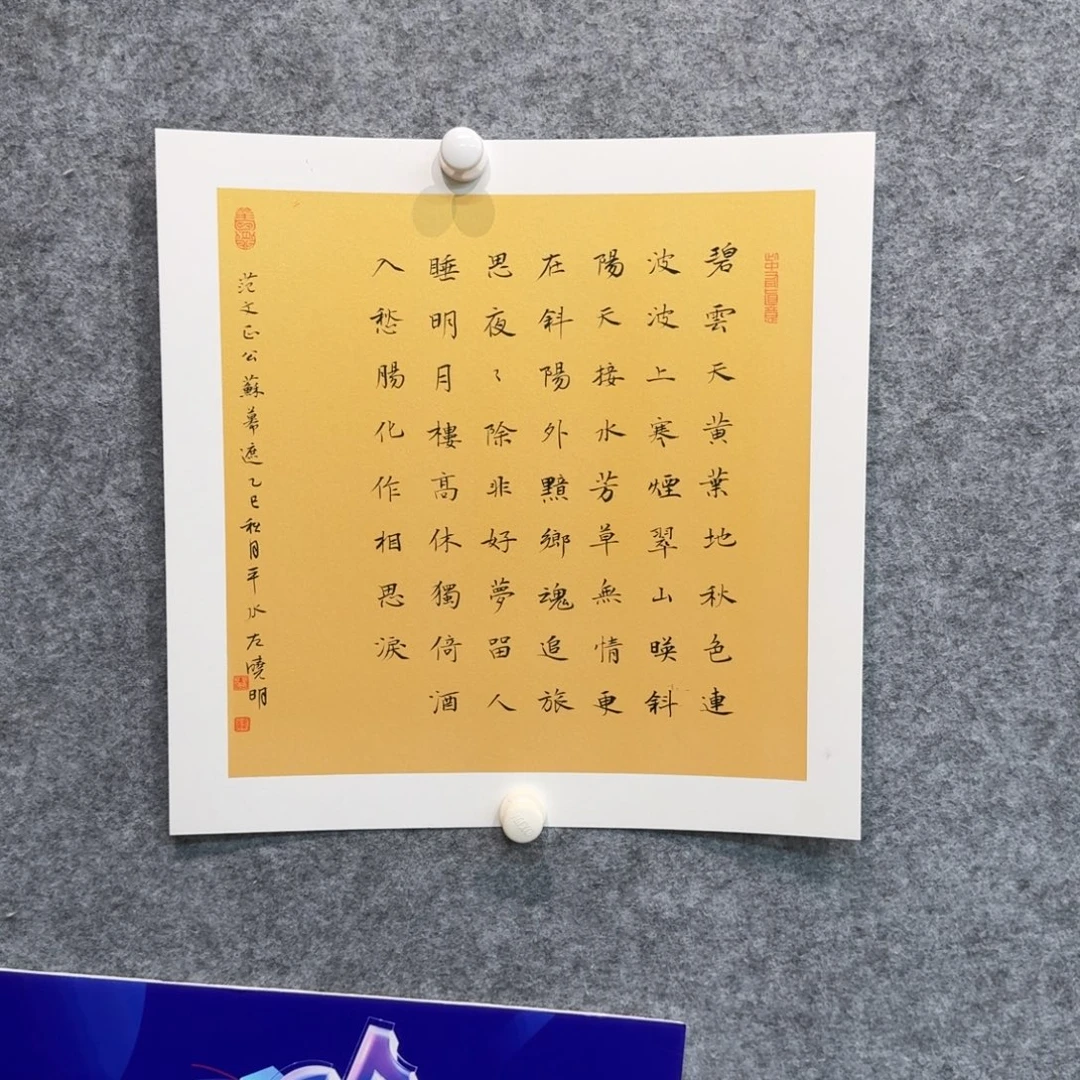 碧雲天黄葉地秋色連
波波上寒煙翠山暎斜
陽天接水芳草無情更
在斜陽外黯鄉魂追旅
思夜〻除非好夢留人
睡明月樓高休獨倚酒
入愁腸化作相思淚
范文正公蘇幕遮乙巳秋月平水左曉明